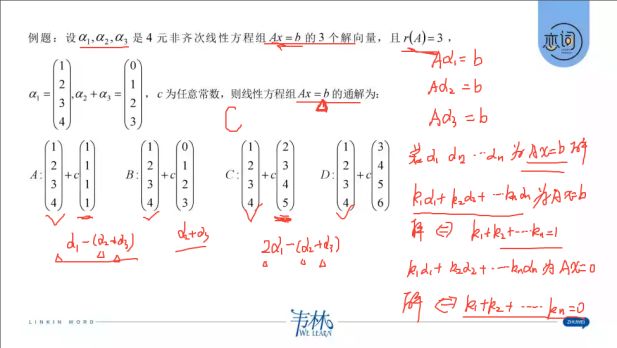 例题：设 α₁,α₂,α₃ 是 4 元非齐次线性方程组 Ax = b 的 3 个解向量，且 r(A)=3，
α₁ = (1 2 3 4), α₂ + α₃ = (0 1 2 3), c 为任意常数，则线性方程组 Ax = b 的通解为：
C
A: (1 2 3 4) + c (1 1 1 1) B: (1 2 3 4) + c (0 1 2 3) C: (1 2 3 4) + c (2 3 4 5) D: (1 2 3 4) + c (3 4 5 6)
α₁ − (α₂+α₃) α₂+α₃ 2α₁ − (α₂+α₃)
恋词
Aα₁ = b
Aα₂ = b
Aα₃ = b
若 α₁ α₂ ⋯ αₙ 为 AX=b 解
k₁α₁ + k₂α₂ + ⋯ kₙαₙ 为 AX=b
解 ⇔ k₁+k₂+⋯kₙ=1
k₁α₁ + k₂α₂ + ⋯ kₙαₙ 为 AX=0
解 ⇔ k₁+k₂+⋯⋯ kₙ=0
LINKIN WORD
韦林
WE LEARN
ZHUWEI